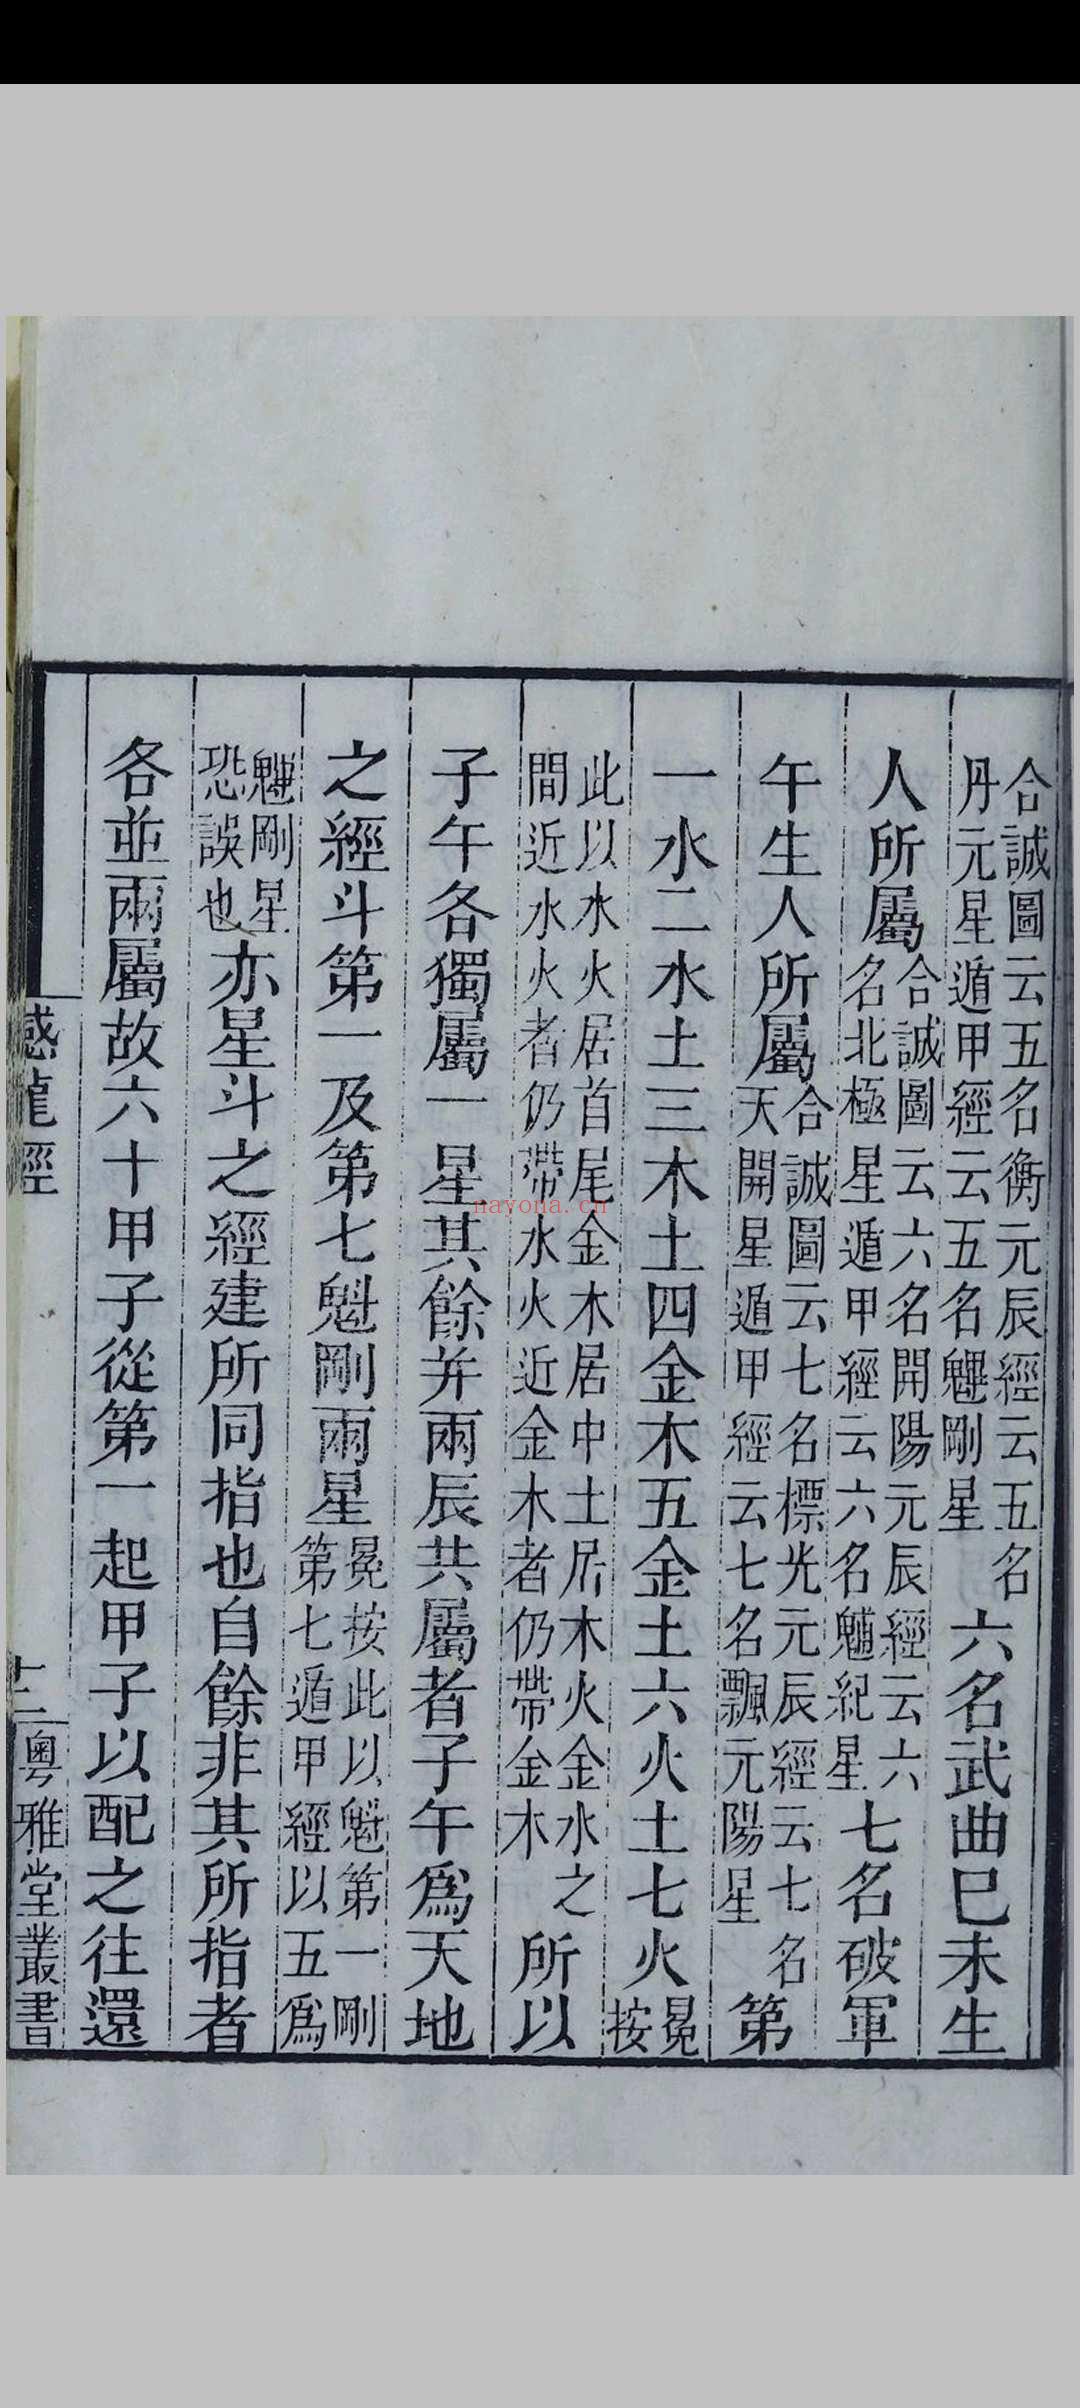 合誠圖云五名衡元辰經云五名丹元星遁甲經云五名魓剛星六名武曲巳未生
人所屬合誠圖云六名開陽元辰經云六名北極星遁甲經云六名䰨紀星七名破軍
午生人所屬合誠圖云七名標光元辰經云七名天開星遁甲經云七名飄元陽星第
一水二水土三木土四金木五金土六火土七火冕按
此以水火居首尾金木居中土居木火金水之間近水火者仍帶水火近金木者仍帶金木所以
子午各獨屬一星其餘并兩辰共屬者子午爲天地
之經斗第一及第七魁剛兩星冕按此以魁第一剛第七遁甲經以五爲
魓剛星恐誤也亦星斗之經建所同指也自餘非其所指者
各並兩屬故六十甲子從第一起甲子以配之往還
撼龍經
十二
粵雅堂叢書
nayona.cn